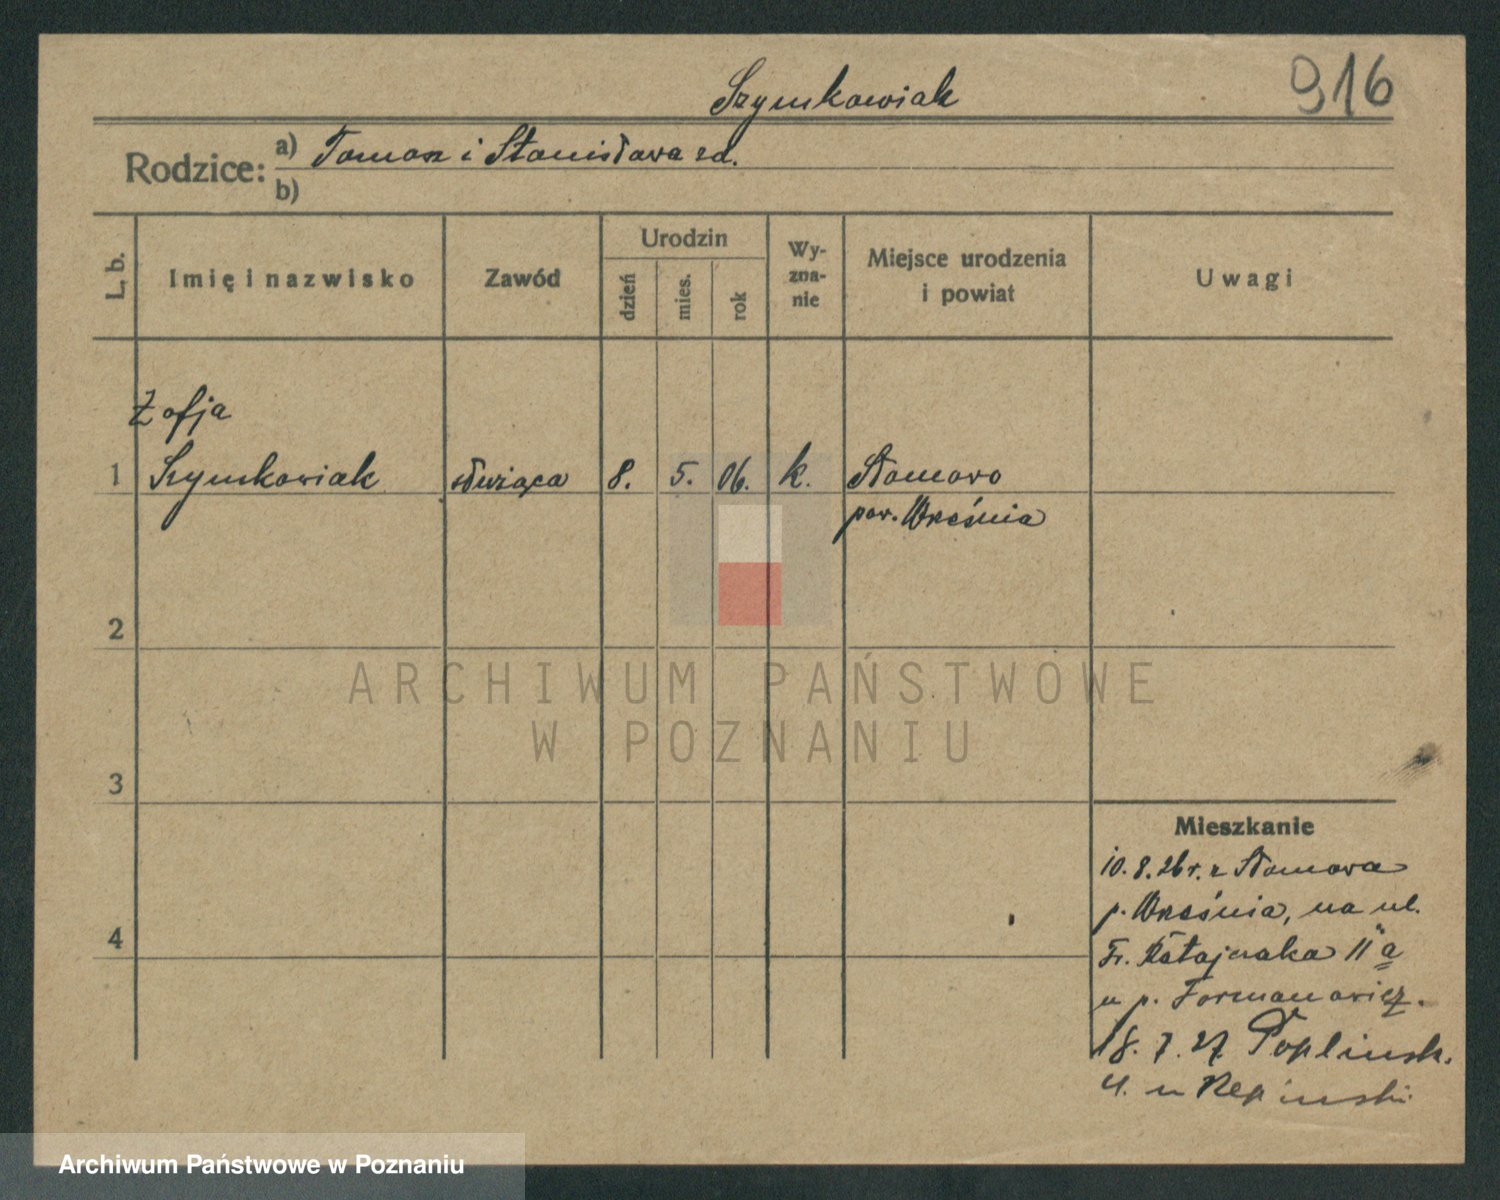 Szymkowiak
916
Rodzice: a) Tomasz i Stanisława zd.
b)
L. b.
Imię i nazwisko
Zawód
Urodzin
dzień
mies.
rok
Wy-
zna-
nie
Miejsce urodzenia
i powiat
Uwagi
Zofja
1 Szymkowiak służąca 8. 5. 06. k. Słomowo
pow. Września
2
3
4
Mieszkanie
10.8.26 r. z Słomowa
p. Września, na ul.
Fr. Ratajczaka 11 a
u p. Formanowicz.
18.7.27 Poplinsk.
4. u Repinski
ARCHIWUM PAŃSTWOWE
W POZNANIU
Archiwum Państwowe w Poznaniu